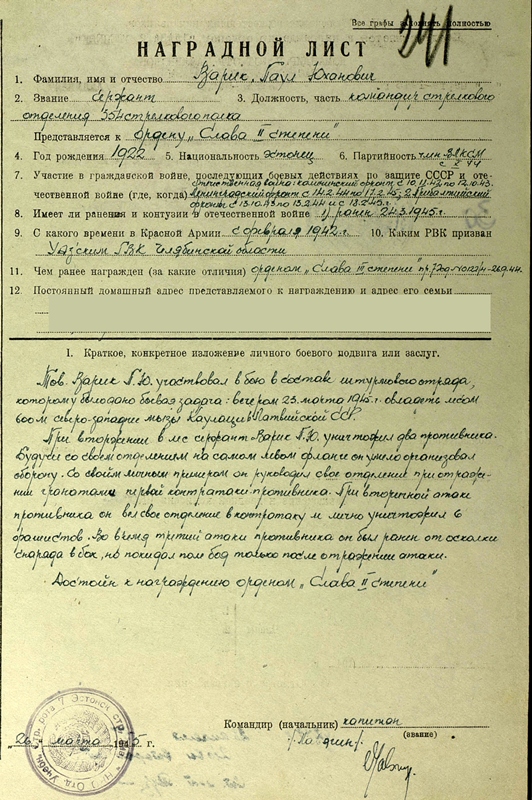 Все графы заполнять полностью
241
НАГРАДНОЙ ЛИСТ
1. Фамилия, имя и отчество Варик, Паул Юханович
2. Звание сержант 3. Должность, часть командир стрелкового
отделения 354 стрелкового полка
Представляется к Ордену „Слава II степени"
4. Год рождения 1922 5. Национальность эстонец 6. Партийность член ВЛКСМ
с
7. Участие в гражданской войне, последующих боевых действиях по защите СССР и оте-
чественной войне (где, когда) Отечественная война: калининский фронт с 10.11.42 по 12.10.43.
Ленинградский фронт с 14.2.44 по 17.2.45; 2 Прибалтийский
фронт с 13.10.43 по 13.2.44 и с 18.2.45 г.
8. Имеет ли ранения и контузии в отечественной войне 1) ранен 24.3.1945 г.
9. С какого времени в Красной Армии с февраля 1942 г. 10. Каким РВК призван
РВК Челябинской области
11. Чем ранее награжден (за какие отличия) орденом „Слава III степени"
12. Постоянный домашный адрес представляемого к награждению и адрес его семьи
I. Краткое, конкретное изложение личного боевого подвига или заслуг.
Тов. Варик П.Ю. участвовал в бою в составе штурмового отряда,
которому было дано боевая задача: вечером 23 марта 1945 г. овладеть лесом
600 м северо-западние мызы Каулаци в Латвийской ССР.
При вторжении в лес сержант Варик П.Ю. уничтожил два противника.
Будучи со своем отделением на самом левом фланге он умело организовал
оборону. Со своим личным примером он руководил свое отделение при отраже-
нии гранотами первой контратаки противника. При вторичной атаке
противника он вел свое отделение в контратаку и лично уничтожил 6
фашистов. Во время третий атаки противника он был ранен от осколки
снаряда в бок, но покидал поле боя только после отражении атаки.
Достоин к награждению орденом „Слава II степени"
Командир (начальник) капитан
(звание)
марта 1945 г.